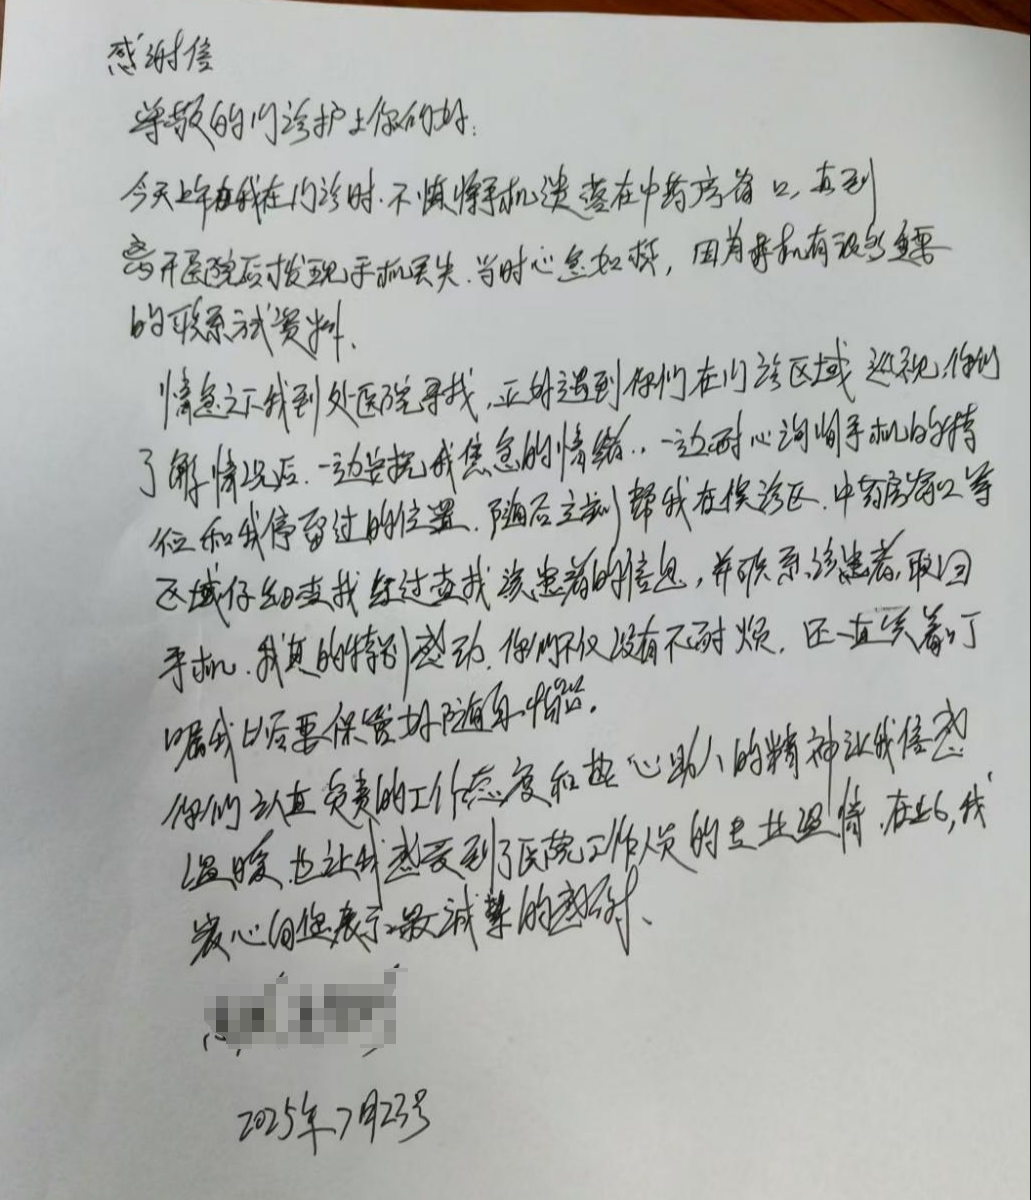 感谢信
尊敬的门诊护士你们好:
今天上午我在门诊时.不慎将手机遗落在中药房窗口,直到
离开医院后才发现手机丢失.当时心急如焚,因为手机有很多重要
的联系方式资料.
情急之下我到处医院寻找,正好遇到你们在门诊区域巡视,你们
了解情况后.一边安抚我焦急的情绪..一边耐心询问手机的特
征和我停留过的位置.随后立刻帮我在候诊区.中药房窗口等
区域仔细查找经过查找该患者的信息,并联系该患者,取回
手机.我真的特别感动.你们不仅没有不耐烦.还一直笑着叮
嘱我以后要保管好随身物品.
你们认真负责的工作态度和热心助人的精神让我倍感
温暖.也让我感受到了医院工作人员的专业温情.在此,我
衷心向您表示最诚挚的感谢、
2025年7月23号